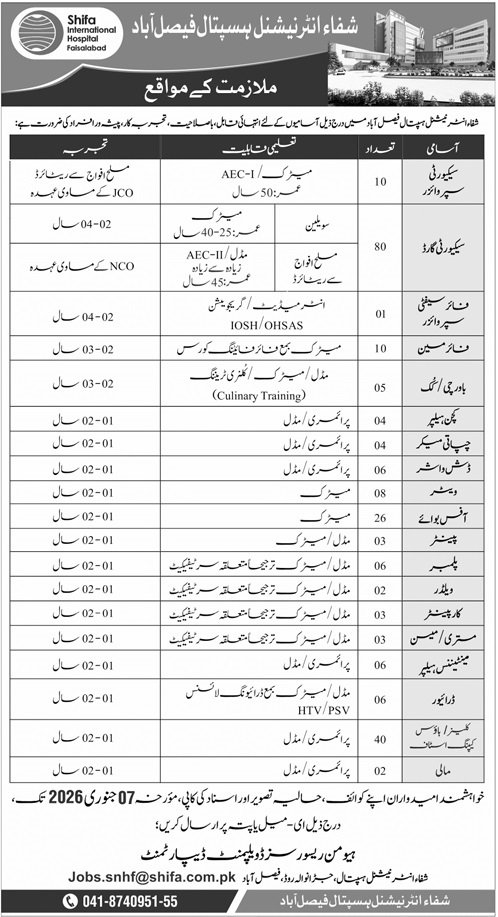 Shifa
International
Hospital
Faisalabad
شفاء انٹرنیشنل ہسپتال فیصل آباد
ملازمت کے مواقع
شفاء انٹرنیشنل ہسپتال فیصل آباد میں درج ذیل آسامیوں کے لئے انتہائی قابل، باصلاحیت، تجربہ کار، پیشہ ور افراد کی ضرورت ہے:
آسامی تعداد تعلیمی قابلیت تجربہ
سیکیورٹی سپروائزر 10 میٹرک/AEC-I عمر: 50 سال مسلح افواج سے ریٹائرڈ JCO کے مساوی عہدہ
سیکیورٹی گارڈ 80 سویلین میٹرک عمر: 25-40 سال 02-04 سال
مسلح افواج سے ریٹائرڈ مڈل/AEC-II زیادہ سے زیادہ عمر: 45 سال NCO کے مساوی عہدہ
فائر سیفٹی سپروائزر 01 انٹرمیڈیٹ/گریجویشن IOSH/OHSAS 02-04 سال
فائر مین 10 میٹرک بمع فائر فائیٹنگ کورس 02-03 سال
باورچی/کک 05 مڈل/میٹرک/کلنری ٹریننگ (Culinary Training) 02-03 سال
کچن ہیلپر 04 پرائمری/مڈل 01-02 سال
چپاتی میکر 04 پرائمری/مڈل 01-02 سال
ڈش واشر 06 پرائمری/مڈل 01-02 سال
ویٹر 08 میٹرک 01-02 سال
آفس بوائے 26 میٹرک 01-02 سال
پینٹر 03 مڈل/میٹرک 01-02 سال
پلمبر 06 مڈل/میٹرک ترجیحاً متعلقہ سرٹیفیکیٹ 01-02 سال
ویلڈر 02 مڈل/میٹرک ترجیحاً متعلقہ سرٹیفیکیٹ 01-02 سال
کارپینٹر 03 مڈل/میٹرک ترجیحاً متعلقہ سرٹیفیکیٹ 01-02 سال
مستری/میسن 03 مڈل/میٹرک ترجیحاً متعلقہ سرٹیفیکیٹ 01-02 سال
مینٹیننس ہیلپر 06 پرائمری/مڈل 01-02 سال
ڈرائیور 06 مڈل/میٹرک بمع ڈرائیونگ لائسنس HTV/PSV 01-02 سال
کلینر/ہاؤس کیپنگ اسٹاف 40 پرائمری/مڈل 01-02 سال
مالی 02 پرائمری/مڈل 01-02 سال
خواہشمند امیدواران اپنے کوائف، حالیہ تصویر اور اسناد کی کاپی، مؤرخہ 07 جنوری 2026 تک،
درج ذیل ای-میل یا پتہ پر ارسال کریں:
ہیومن ریسورسز ڈویلپمنٹ ڈیپارٹمنٹ
شفاء انٹرنیشنل ہسپتال، جڑانوالہ روڈ، فیصل آباد Jobs.snhf@shifa.com.pk
شفاء انٹرنیشنل ہسپتال فیصل آباد 041-8740951-55